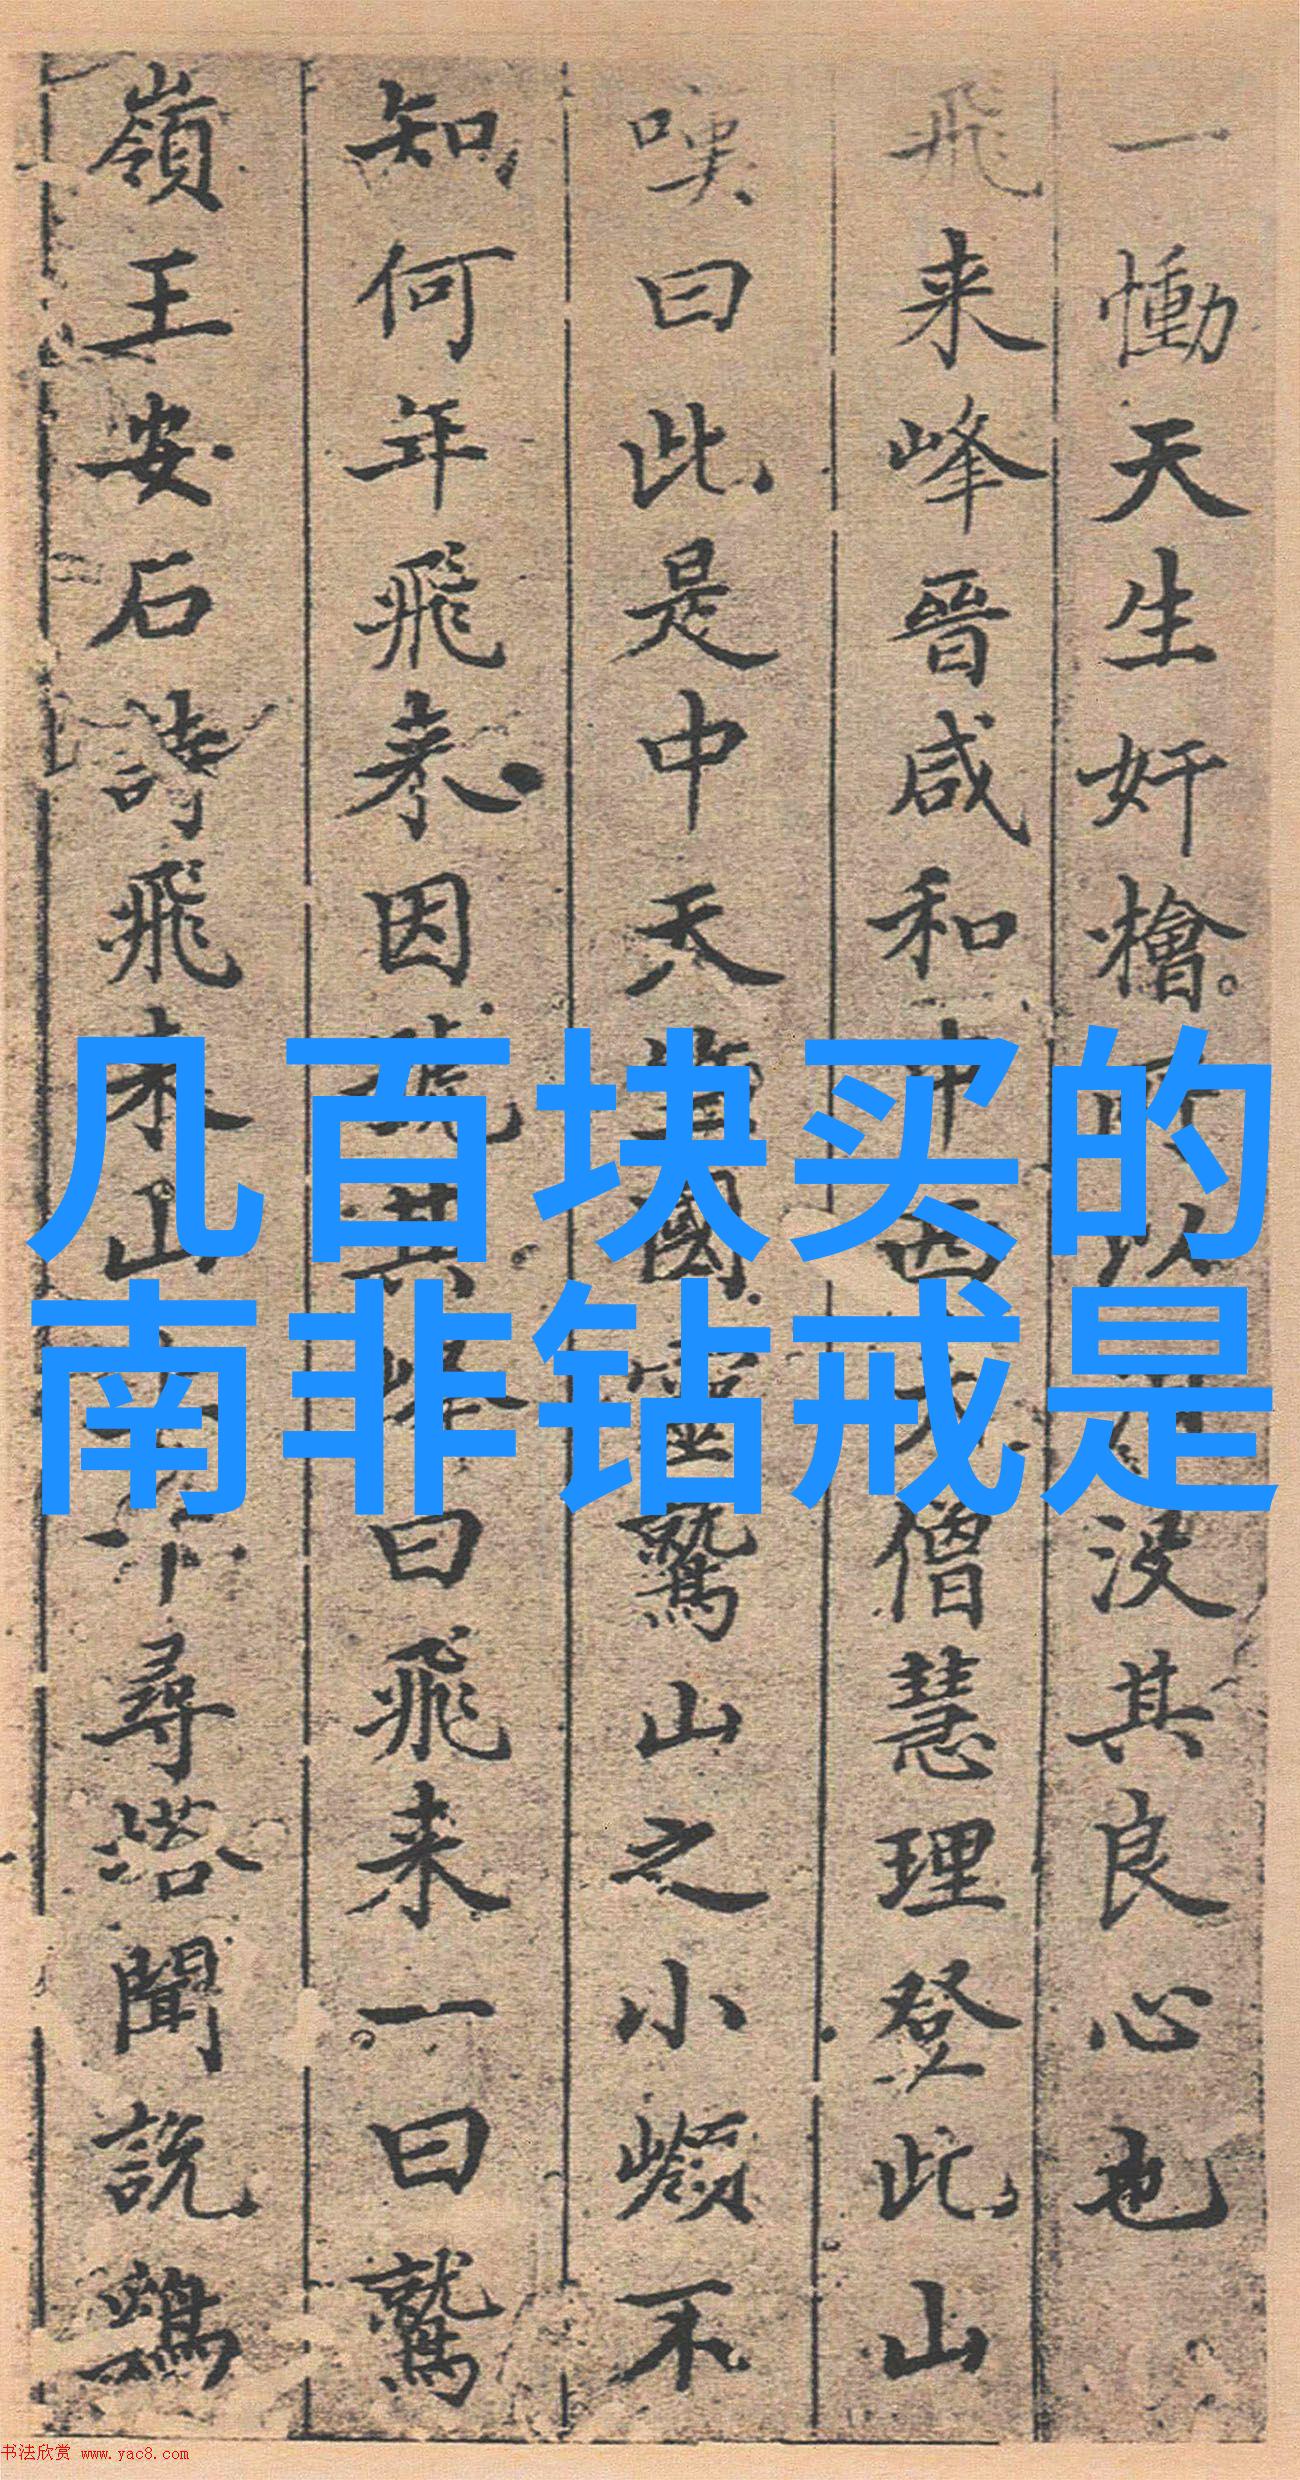 几百块买的
南非钻戒是
一慟天生奸檜。所以没其良心也
飛来峰晉咸和中西天僧慧理登此山
嘆曰此是中天竺國靈鷲山之小嶺不
知何年飛来因號其峰曰飛来一曰鷲
嶺王安石詩飛来山上千尋塔聞說鷄
书法欣赏 www.yac8.com